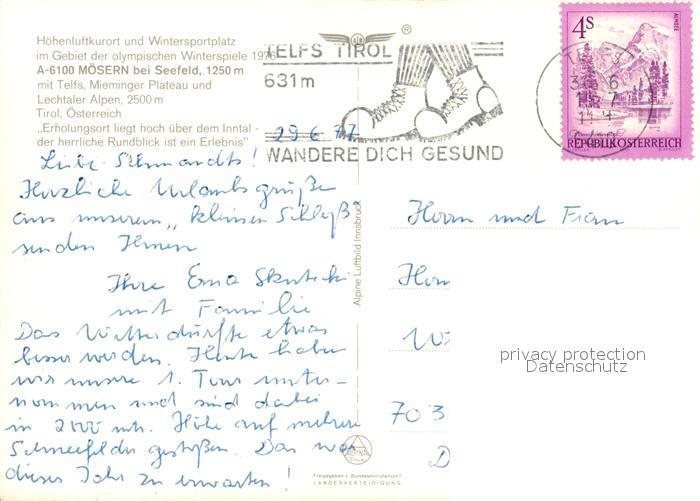 Höhenluftkurort und Wintersportplatz
im Gebiet der olympischen Winterspiele 1976
A-6100 MÖSERN bei Seefeld, 1250 m
mit Telfs, Mieminger Plateau und
Lechtaler Alpen, 2500 m
Tirol, Österreich
„Erholungsort liegt hoch über dem Inntal -
der herrliche Rundblick ist ein Erlebnis"
®
TELFS TIROL
631 m
WANDERE DICH GESUND
4S
ALMSEE
REPUBLIK ÖSTERREICH
29 6 77
Liebe
Herzliche Urlaubsgrüße
aus unserem „kleinen Schloß"
senden Ihnen
Ihre Erna
mit Familie.
Das Wetter dürfte etwas
besser werden. Heute haben
wir unsere 1. Tour unter-
nommen und sind dabei
in 2000 mtr. Höhe auf mehrere
Schneefelder gestoßen. Das war
dieses Jahr zu erwarten!
Alpine Luftbild Innsbruck
ALPINE
Freigegeben v. Bundesministerium f.
LANDESVERTEIDIGUNG
Herrn und Frau
703
D
privacy protection
Datenschutz